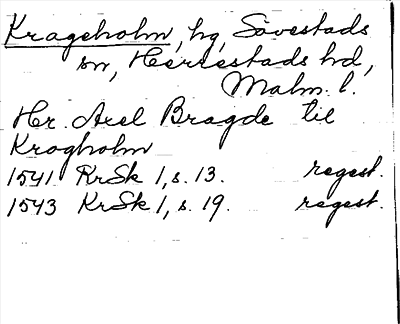 Krageholm, hg, Sövestads
sn, Herrestads hd,
Malm. l.
Hr. Axel Bragde til
Krogholm
1541 KrSk 1, s. 13. regest.
1543 KrSk 1, s. 19. regest.